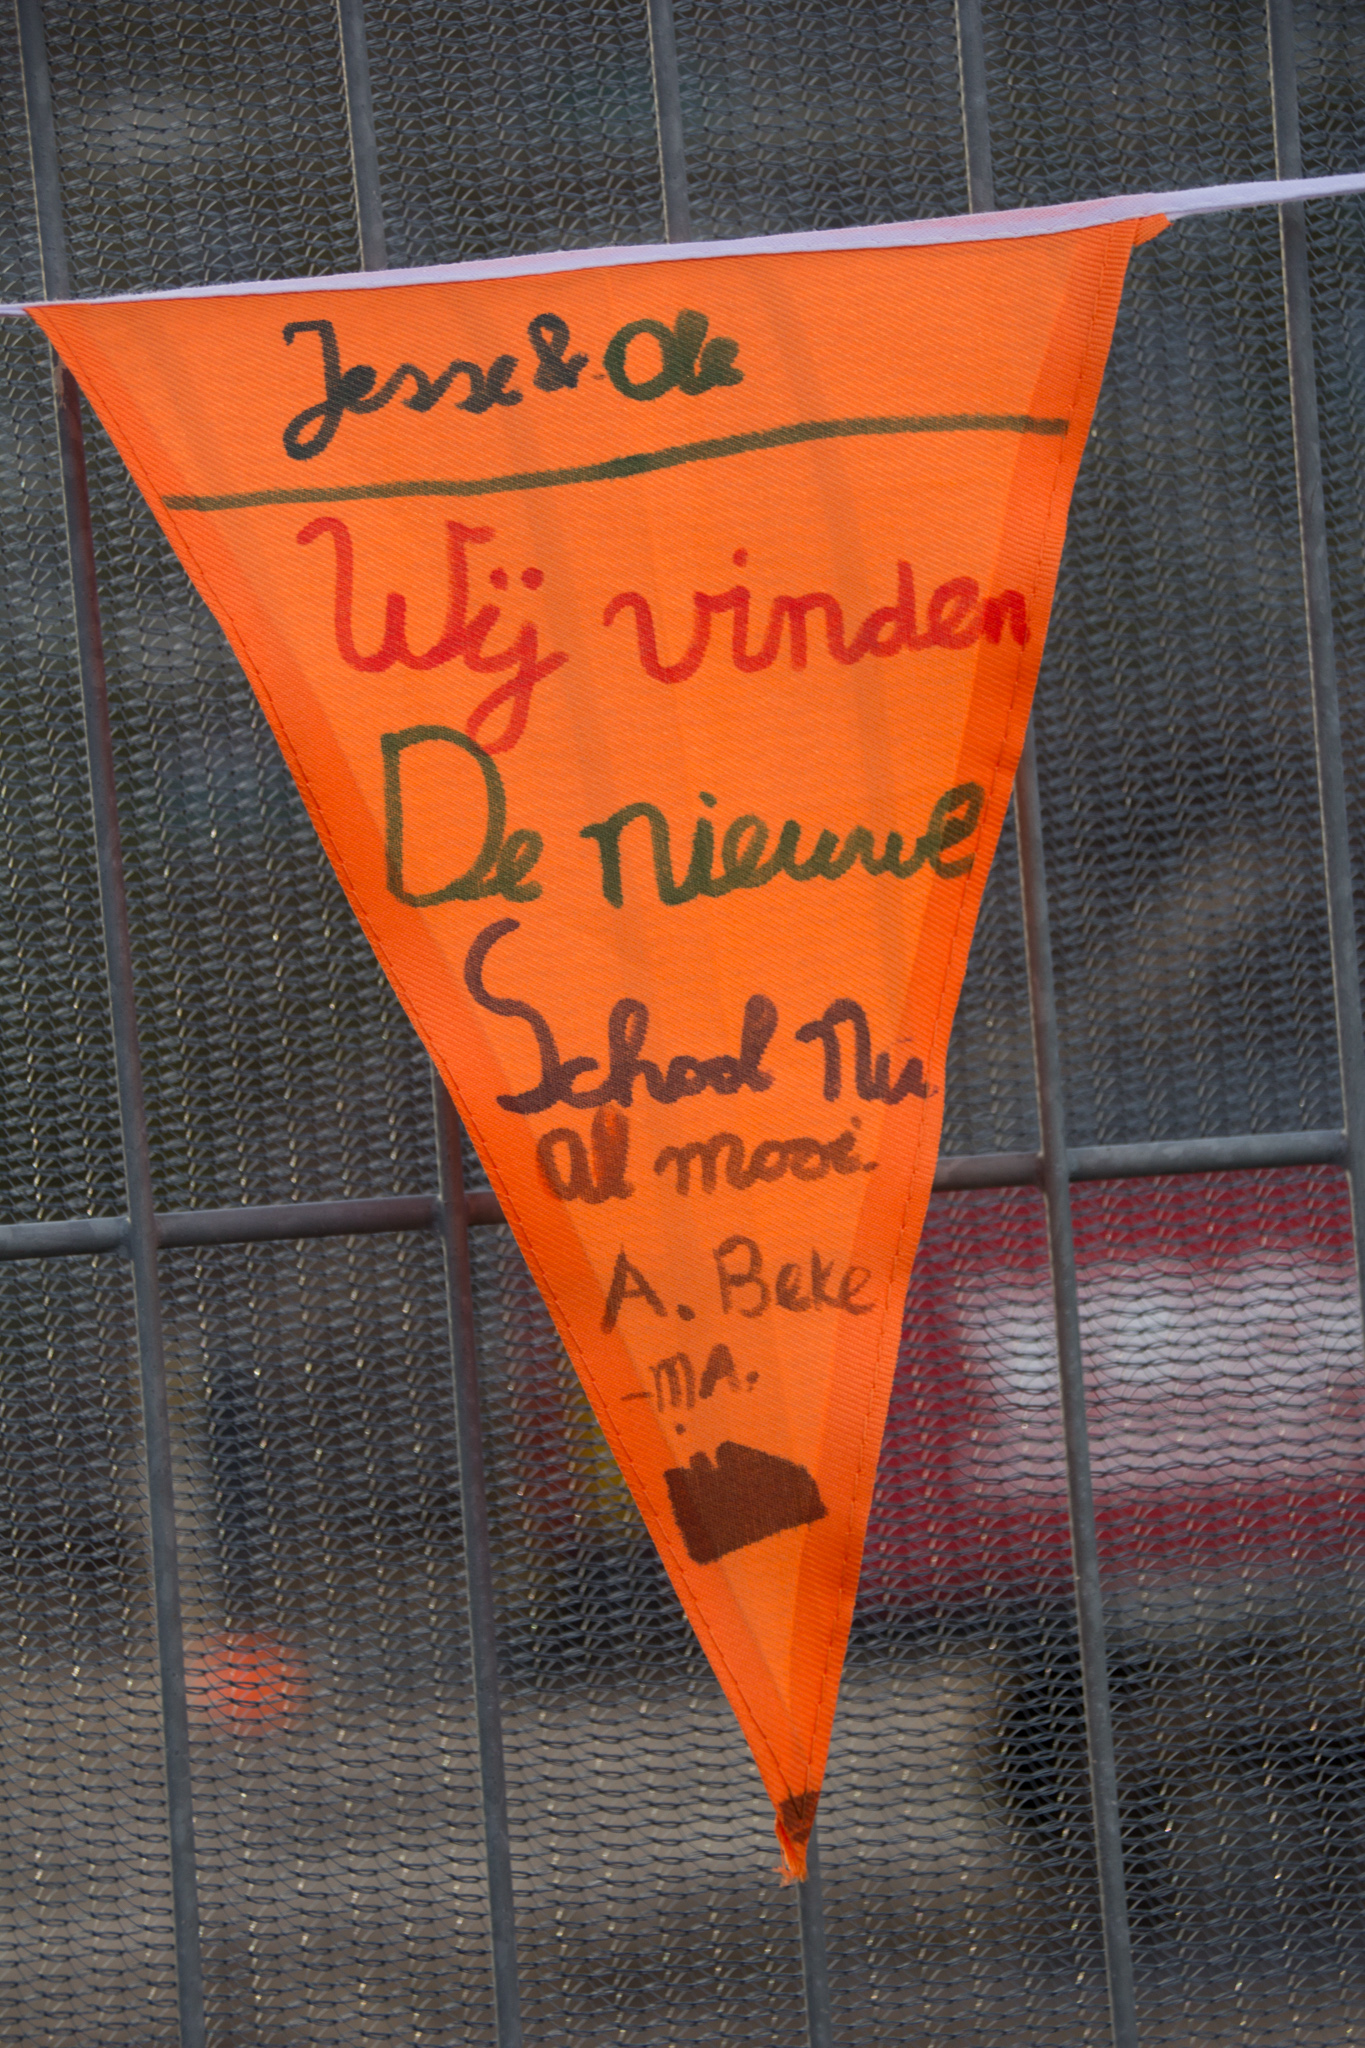 Jesse & Ole
Wij vinden
De nieuwe
School Nu
al mooi.
A. Beke
-MA.